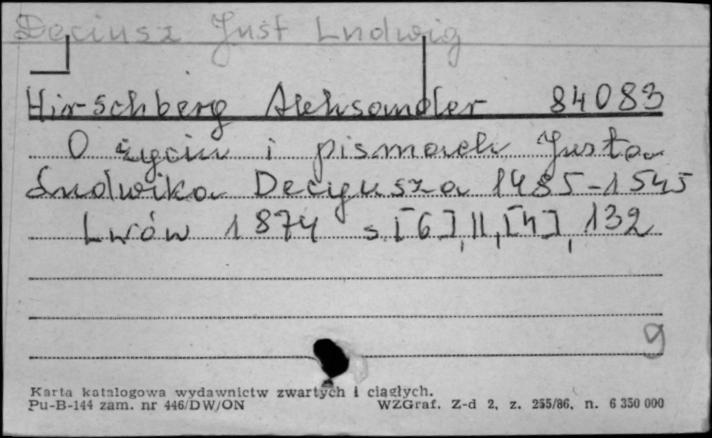 Deciusz Just Ludwig
Hirschberg Aleksander 84083
O życiu i pismach Justa
Ludwika Decyusza 1485-1545
Lwów 1874 s. [6], II, [4], 132
9
Karta katalogowa wydawnictw zwartych i ciągłych.
Pu-B-144 zam. nr 446/DW/ON WZGraf. Z-d 2, z. 255/86, n. 6 350 000